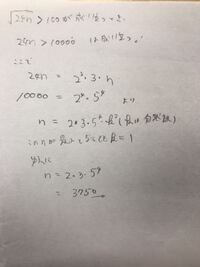 √24n > 100 が成り立つとき
24n > 10000 は成り立つ
ここで
24n = 2³・3・n
10000 = 2⁴・5⁴ より
n = 2・3・5⁴・k² (kは自然数)
このnが最小となるとき k = 1
故に
n = 2・3・5⁴
= 3750